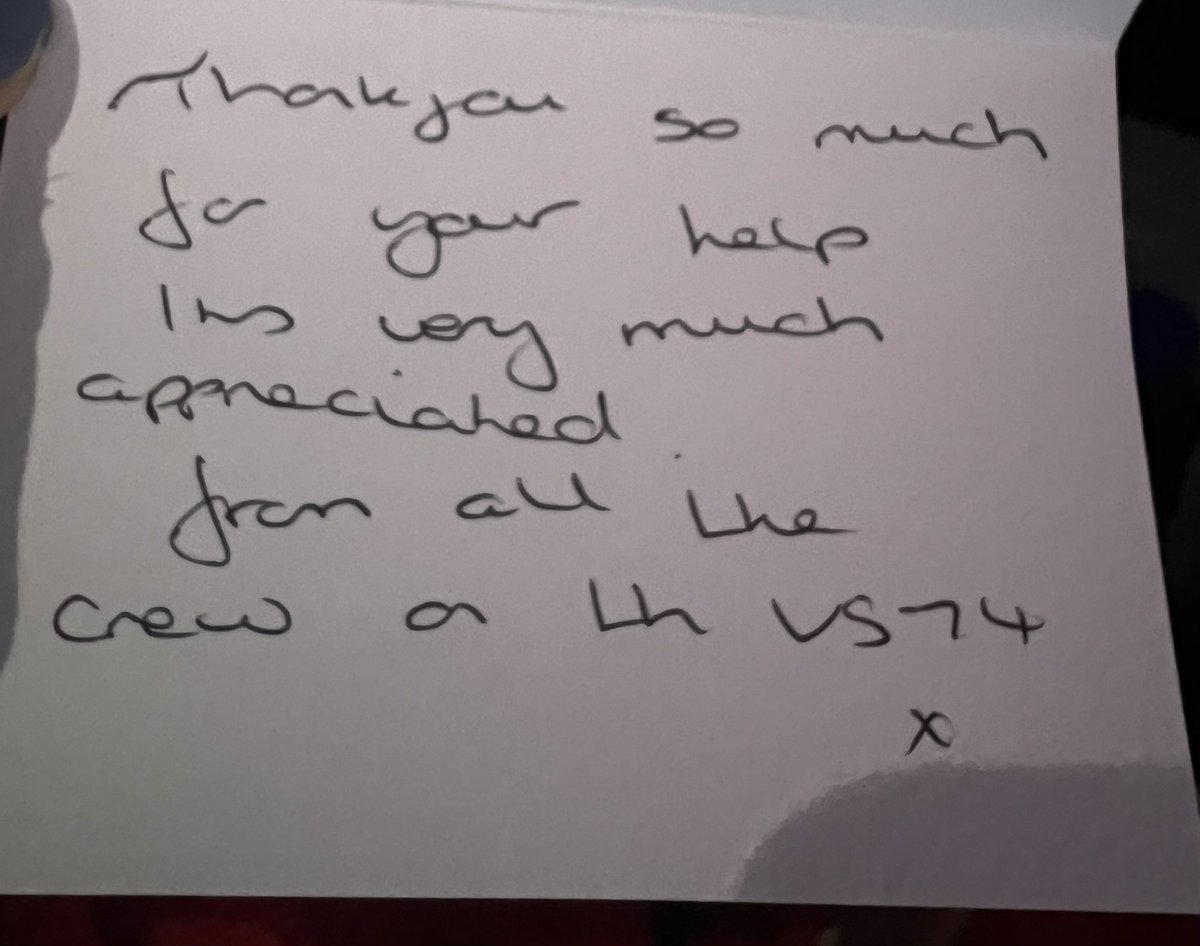 Thankyou so much
for your help
Its very much
appreciated.
from all the
crew on the VS74
x